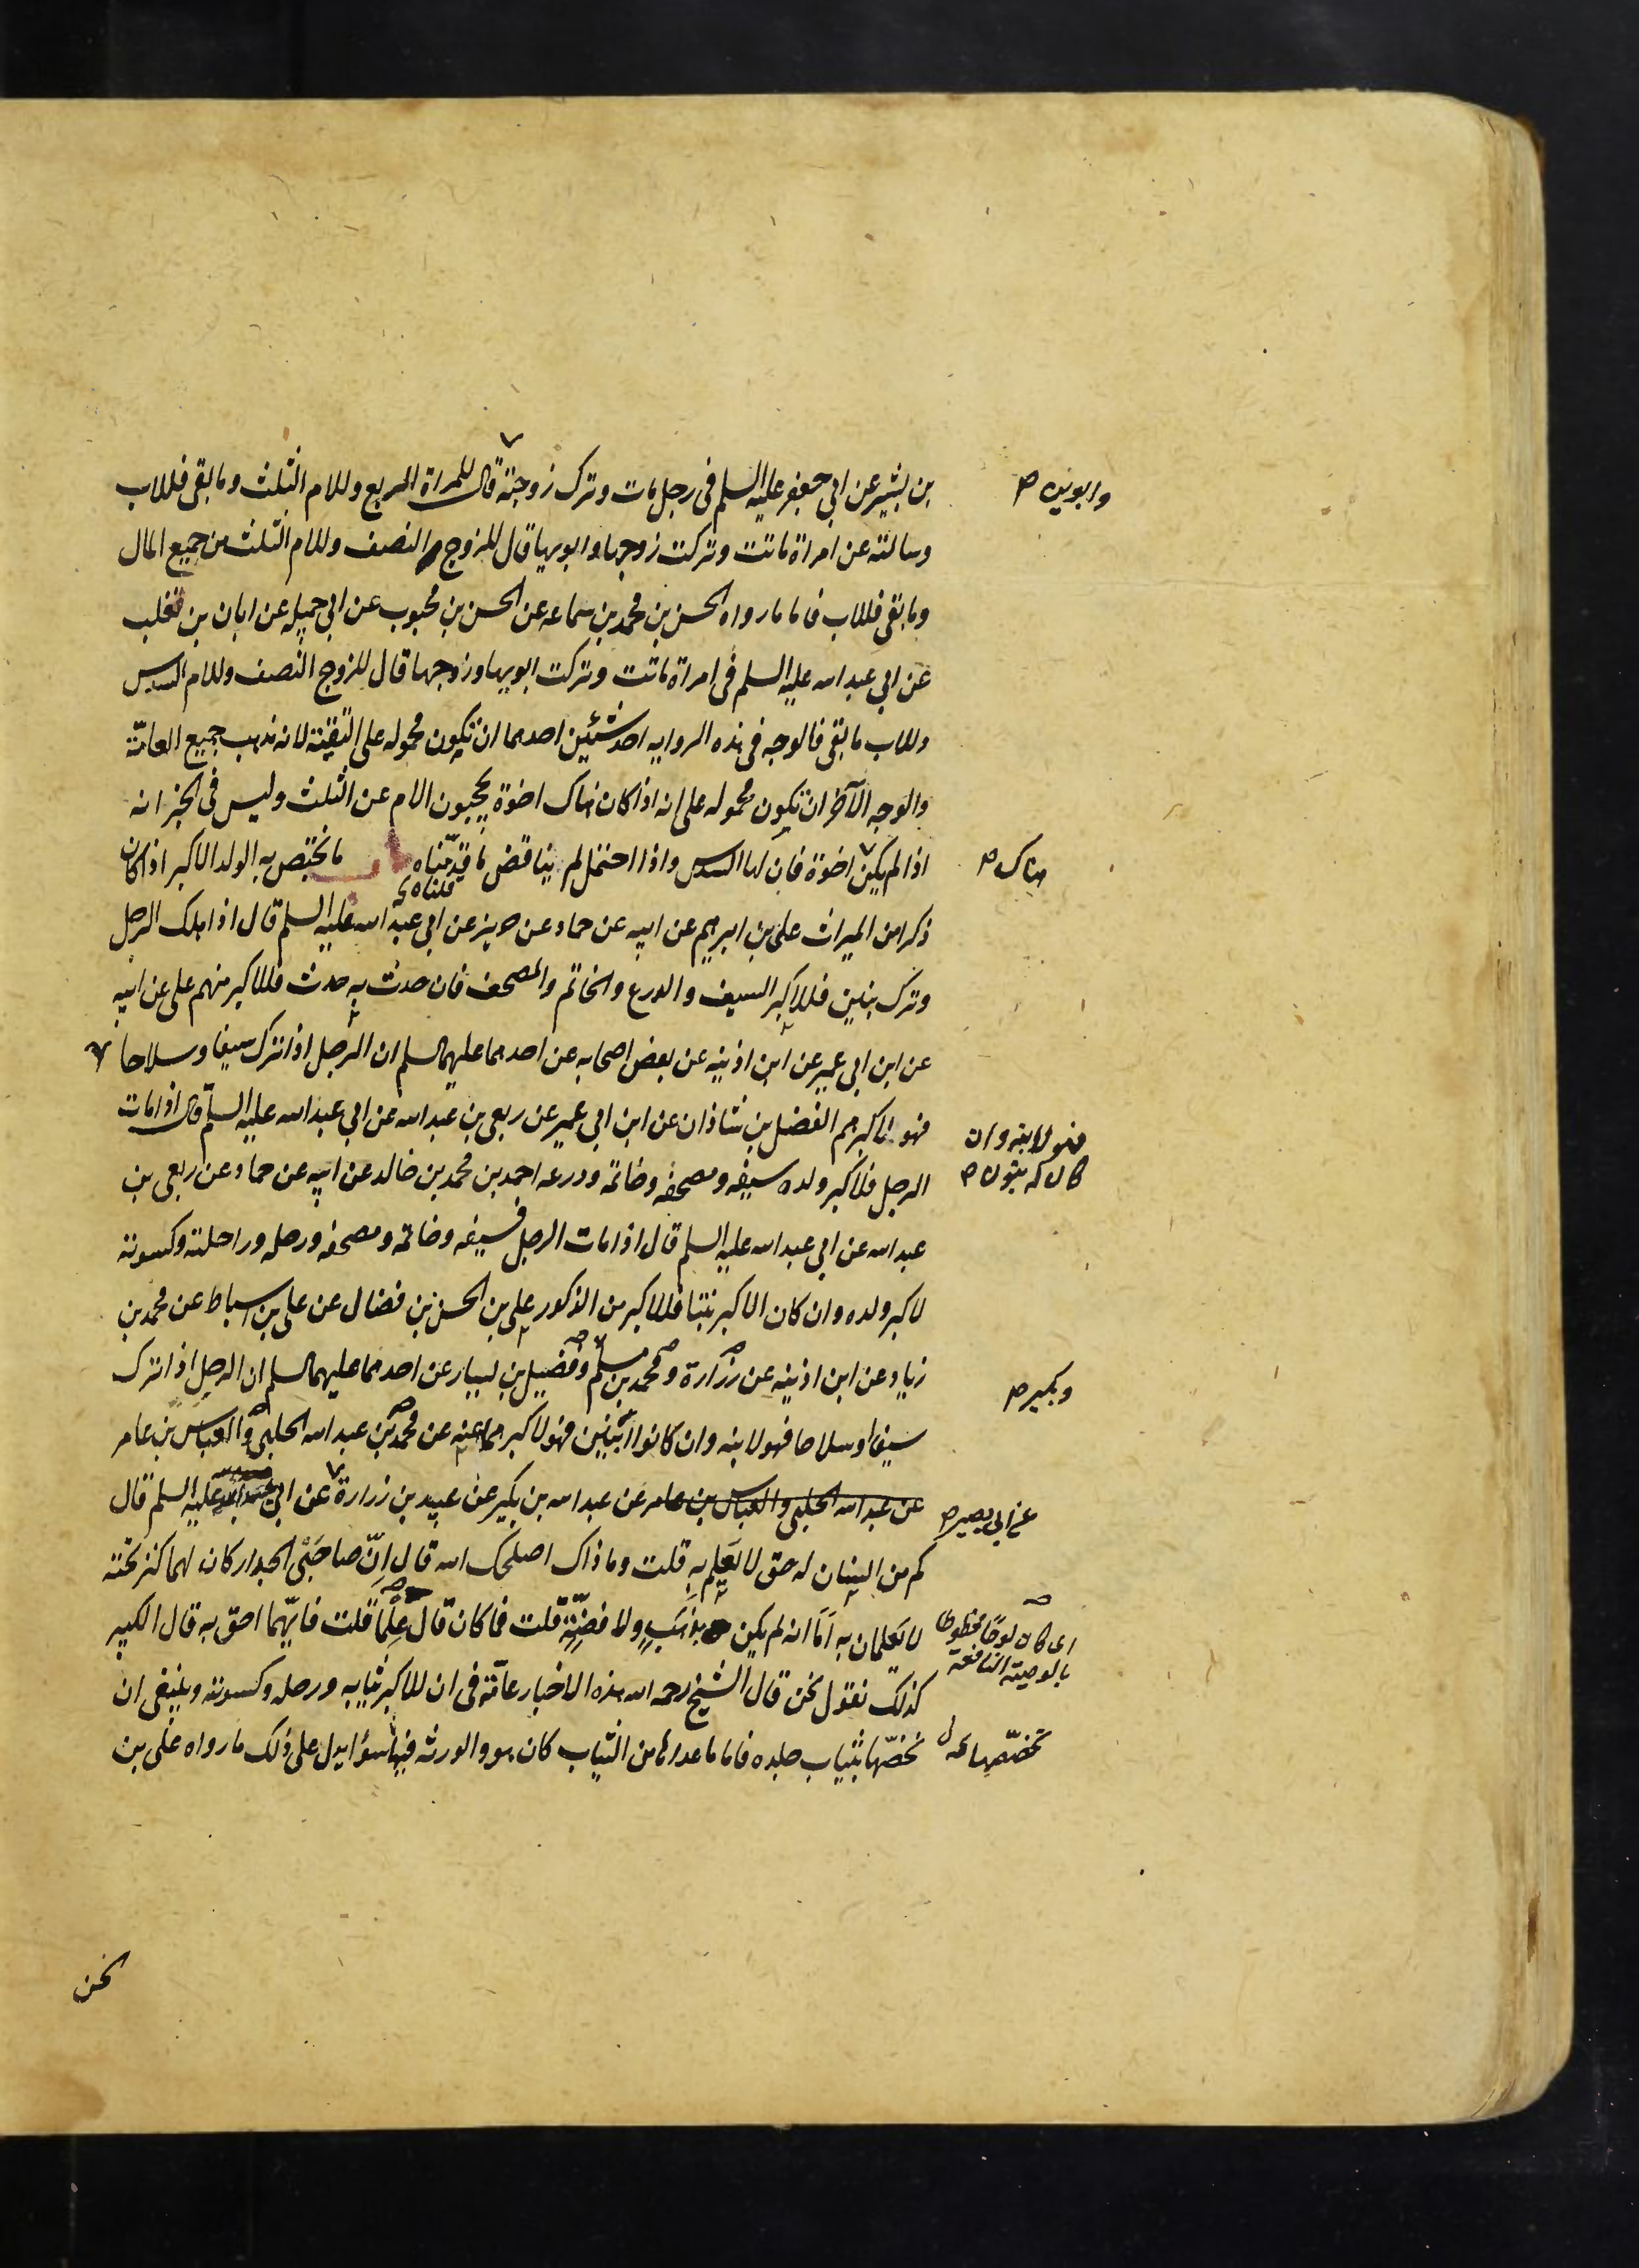 بن بشير عن ابي جعفر عليه السلم في رجل مات وترك زوجته قال للمراة الربع وللام الثلث وما بقى فللاب
وابويه صح
وسالته عن امراة ماتت وتركت زوجها وابويها قال للزوج النصف وللام الثلث من جميع المال
وما بقى فللاب فاما ما رواه الحسن بن محمد بن سماعه عن الحسن بن محبوب عن ابي جميله عن ابان بن تغلب
عن ابي عبد الله عليه السلم في امراة ماتت وتركت ابويها وزوجها قال للزوج النصف وللام السدس
وللاب ما بقى فالوجه في هذه الروايه احد شيئين احدهما ان تكون محموله على التقية لانه مذهب جميع العامّة
والوجه الآخر ان تكون محموله على انه اذا كان هناك اخوة يحجبون الام عن الثلث وليس في الخبر انه
اذا لم يكن اخوة فان لها السدس واذا احتمل لم يناقض ما قدّمناه ما يختص به الولد الاكبر اذا كان
هناك صح
قلناه
ذكرا من الميراث على بن ابرهيم عن ابيه عن حماد عن حريز عن ابي عبد الله عليه السلم قال اذا هلك الرجل
وترك بنين فللاكبر السيف والدرع والخاتم والمصحف فان حدث به حدث فللاكبر منهم على عن ابيه
عن ابن ابي عمير عن ابن اذينه عن بعض اصحابه عن احدهما عليهما السلم ان الرجل اذا ترك سيفا وسلاحا
فهو لابنه وان
كان له بنون صح
فهو لاكبرهم الفضل بن شاذان عن ابن ابي عمير عن ربعى بن عبد الله عن ابي عبد الله عليه السلم قال اذا مات
الرجل فلاكبر ولده سيفه ومصحفه وخاتمه ودرعه احمد بن محمد بن خالد عن ابيه عن حماد عن ربعى بن
عبد الله عن ابي عبد الله عليه السلم قال اذا مات الرجل فسيفه وخاتمه ومصحفه ورحله وراحلته وكسوته
لاكبر ولده وان كان الاكبر بنتا فللاكبر من الذكور على بن الحسن بن فضال عن على بن اسباط عن محمد بن
زياد عن ابن اذينه عن زرارة ومحمد بن مسلم وفضيل بن يسار عن احدهما عليهما السلم ان الرجل اذا ترك
وبكير صح
سيفا وسلاحا فهو لابنه وان كانوا اثنين فهو لاكبرهما عنه عن محمد بن عبد الله الحلبي والعباس بن عامر
عن عبد الله الحلبي والعباس بن عامر عن عبد الله بن بكير عن عبيد بن زرارة عن ابي عبد الله عليه السلم قال
عن ابي بصير صح
كم من انسان له حق لا يعلم به قلت وما ذاك اصلحك الله قال اِنّ صاحَبَى الجدار كان لهما كنز تحته
لا يعلمان به اَمَا انه لم يكن بذهَبٍ ولا فضّةٍ قلت فما كان قال عِلْمًا قلت فايّهما احق به قال الكبير
اى كان لوحًا محظوظا
بالوصية النافعة
كذلك نقول نحن قال الشيخ رحمه الله هذه الاخبار عامّة في ان للاكبر ثيابه ورحله وكسوته وينبغى ان
نخصّها بثياب جلده فاما ما عداها من الثياب كان هو والورثه فيها سؤا يدل على ذلك ما رواه على بن
تخصّصها
نحن